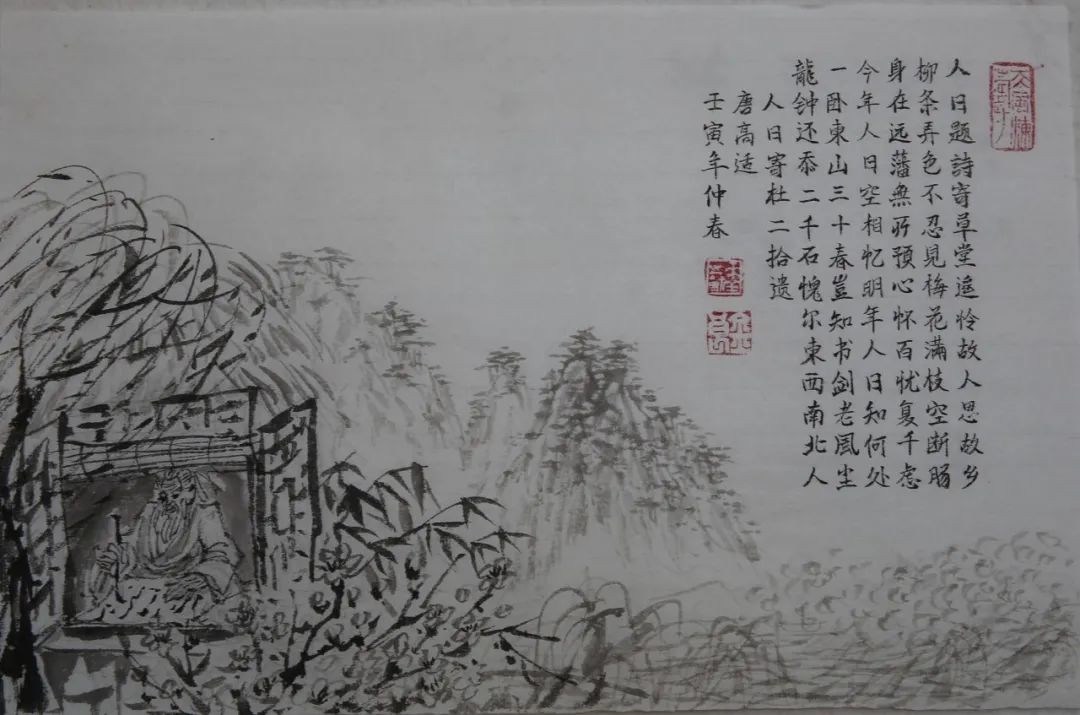 人日题詩寄草堂遥怜故人思故乡
柳条弄色不忍見梅花满枝空断肠
身在远藩無所預心怀百忧复千虑
今年人日空相忆明年人日知何处
一卧東山三十春豈知书剑老風尘
龍钟还忝二千石愧尔東西南北人
人日寄杜二拾遗
唐高适
壬寅年仲春